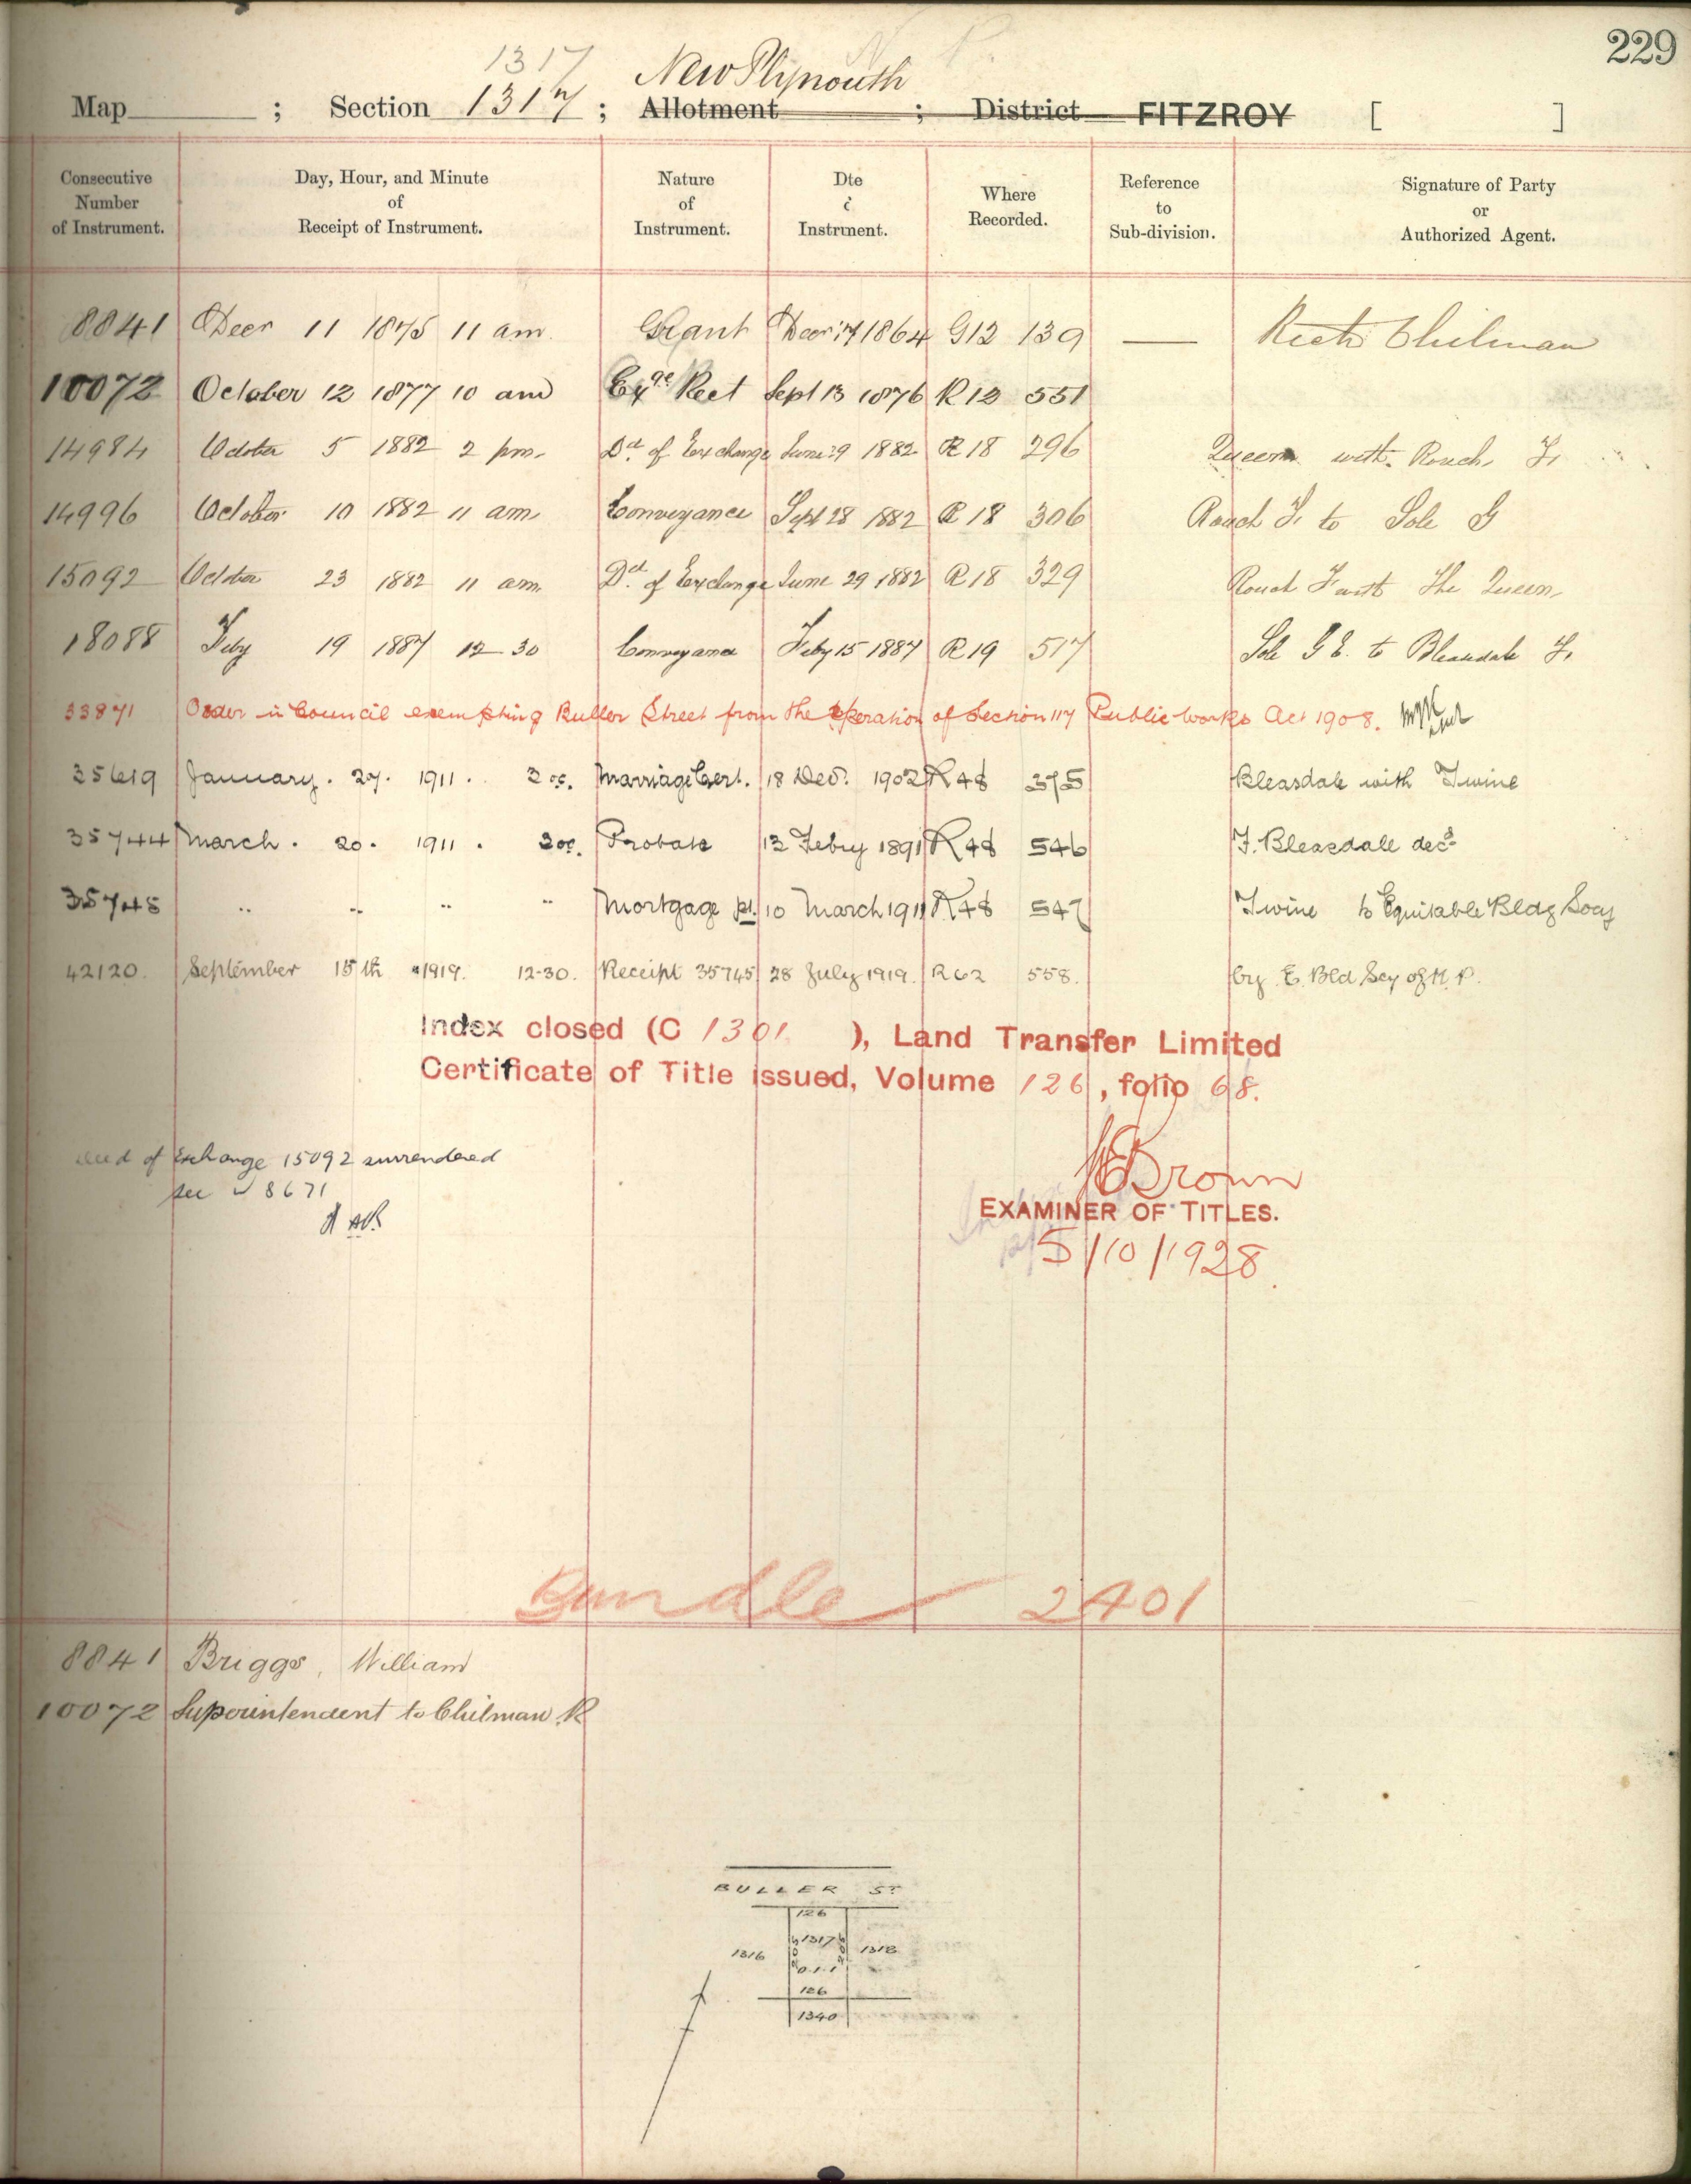 229
1317 New Plymouth
Map ; Section 1317 ; Allotment ; District FITZROY [ ]
Consecutive Number of Instrument. Day, Hour, and Minute of Receipt of Instrument. Nature of Instrument. Dte Instrment. Where Recorded. Reference to Sub-division. Signature of Party or Authorized Agent.
8841 Decr 11 1875 11 am Grant Decr 17 1864 G12 139 — Richd Chilman
10072 October 12 1877 10 am Exge Rect Sept 13 1876 R12 551
14984 October 5 1882 2 pm. Dd of Exchange June 29 1882 R18 296 Queen with Rouch, F.
14996 October 10 1882 11 am Conveyance Sept 28 1882 R18 306 Rouch F. to Sole G
15092 October 23 1882 11 am Dd of Exchange June 29 1882 R18 329 Rouch F with The Queen
18088 Feby 19 1887 12 30 Conveyance Feby 15 1887 R19 517 Sole G E. to Bleasdale F.
33871 Order in Council exempting Buller Street from the operation of Section 117 Public Works Act 1908.
35619 January. 27. 1911. 2 oc. Marriage Cert. 18 Dec. 1902 R48 375 Bleasdale with Twine
35744 March. 20. 1911. 2 oc. Probate 12 Febry 1891 R48 546 F. Bleasdale decd
35745 " " " " Mortgage pt. 10 March 1911 R48 547 Twine to Equitable Bldg Socy
42120. September 15th 1919. 12-30. Receipt 35745 28 July 1919. R62 558. by E. Bld Scy of N.P.
Index closed (C 1301 ), Land Transfer Limited
Certificate of Title issued, Volume 126, folio 68.
Deed of Exchange 15092 surrendered
see 8671
Brown
EXAMINER OF TITLES.
5/10/1928.
Bundle 2401
8841 Briggs, William
10072 Superintendent to Chilman R
BULLER ST
126
1316 1317 1318
0.1.1
126
1340